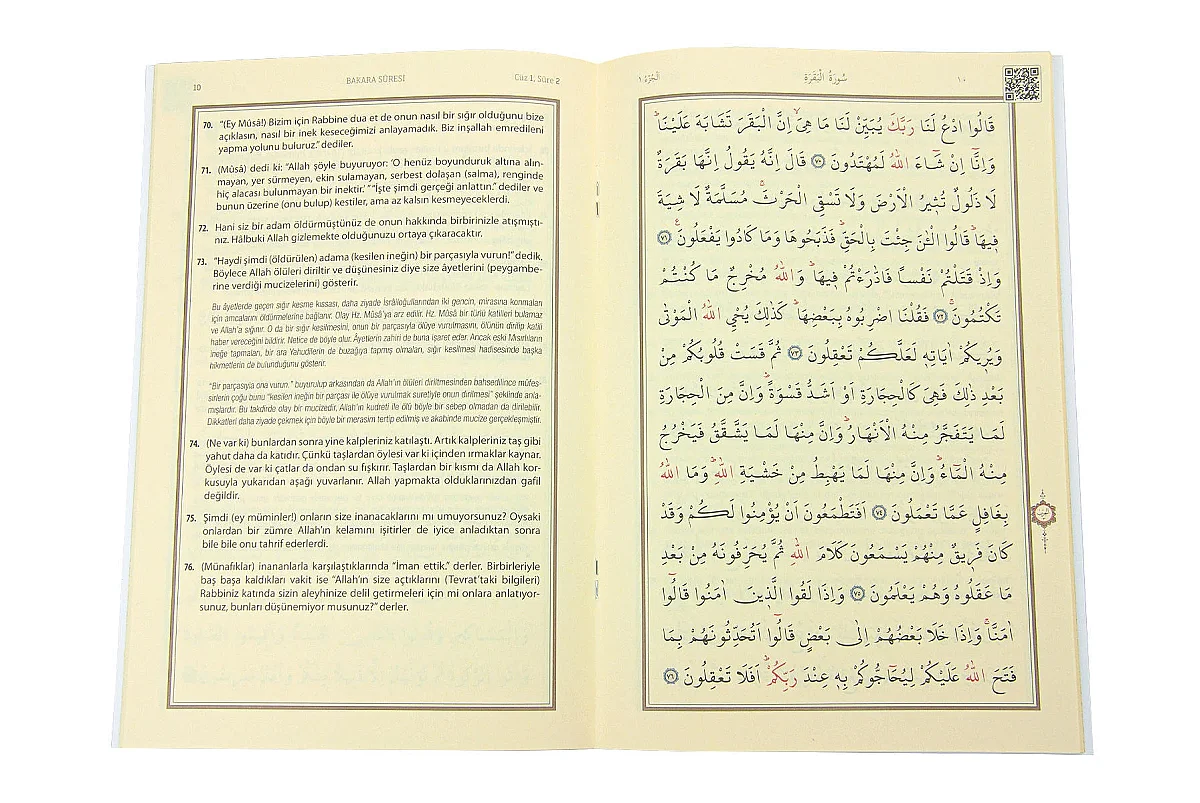 10
BAKARA SÛRESİ
Cüz 1, Sûre 2
70. "(Ey Mûsâ!) Bizim için Rabbine dua et de onun nasıl bir sığır olduğunu bize
açıklasın, nasıl bir inek keseceğimizi anlayamadık. Biz inşallah emredileni
yapma yolunu buluruz." dediler.
71. (Mûsâ) dedi ki: "Allah şöyle buyuruyor: 'O henüz boyunduruk altına alın-
mayan, yer sürmeyen, ekin sulamayan, serbest dolaşan (salma), renginde
hiç alacası bulunmayan bir inektir.' " "İşte şimdi gerçeği anlattın." dediler ve
bunun üzerine (onu bulup) kestiler, ama az kalsın kesmeyeceklerdi.
72. Hani siz bir adam öldürmüştünüz de onun hakkında birbirinizle atışmıştı-
nız. Hâlbuki Allah gizlemekte olduğunuzu ortaya çıkaracaktır.
73. "Haydi şimdi (öldürülen) adama (kesilen ineğin) bir parçasıyla vurun!" dedik.
Böylece Allah ölüleri diriltir ve düşünesiniz diye size âyetlerini (peygambe-
rine verdiği mucizelerini) gösterir.
Bu âyetlerde geçen sığır kesme kıssası, daha ziyade İsrâiloğullarından iki gencin, mirasına konmaları
için amcalarını öldürmelerine bağlanır. Olay Hz. Mûsâ'ya arz edilir. Hz. Mûsâ bir türlü katilleri bulamaz
ve Allah'a sığınır. O da bir sığır kesilmesini, onun bir parçasıyla ölüye vurulmasını, ölünün dirilip katili
haber vereceğini bildirir. Netice de böyle olur. Âyetlerin zahiri de buna işaret eder. Ancak eski Mısırlıların
ineğe tapmaları, bir ara Yahudilerin de buzağıya tapmış olmaları, sığır kesilmesi hadisesinde başka
hikmetlerin de bulunduğunu gösterir.
"Bir parçasıyla ona vurun." buyurulup arkasından da Allah'ın ölüleri diriltmesinden bahsedilince müfes-
sirlerin çoğu bunu "kesilen ineğin bir parçası ile ölüye vurulmak suretiyle onun dirilmesi" şeklinde anla-
mışlardır. Bu takdirde olay bir mucizedir, Allah'ın kudreti ile ölü böyle bir sebep olmadan da dirilebilir.
Dikkatleri daha ziyade çekmek için böyle bir merasim tertip edilmiş ve akabinde mucize gerçekleşmiştir.
74. (Ne var ki) bunlardan sonra yine kalpleriniz katılaştı. Artık kalpleriniz taş gibi
yahut daha da katıdır. Çünkü taşlardan öylesi var ki içinden ırmaklar kaynar.
Öylesi de var ki çatlar da ondan su fışkırır. Taşlardan bir kısmı da Allah kor-
kusuyla yukarıdan aşağı yuvarlanır. Allah yapmakta olduklarınızdan gafil
değildir.
75. Şimdi (ey müminler!) onların size inanacaklarını mı umuyorsunuz? Oysaki
onlardan bir zümre Allah'ın kelamını işitirler de iyice anladıktan sonra
bile bile onu tahrif ederlerdi.
76. (Münafıklar) inananlarla karşılaştıklarında "İman ettik." derler. Birbirleriyle
baş başa kaldıkları vakit ise "Allah'ın size açtıklarını (Tevrat'taki bilgileri)
Rabbiniz katında sizin aleyhinize delil getirmeleri için mi onlara anlatıyor-
sunuz, bunları düşünemiyor musunuz?" derler.
اَلْجُزْءُ ١
سُورَةُ الْبَقَرَةِ
١٠
قَالُوا ادْعُ لَنَا رَبَّكَ يُبَيِّنْ لَنَا مَا هِىَۙ اِنَّ الْبَقَرَ تَشَابَهَ عَلَيْنَاۜ
وَاِنَّٓا اِنْ شَٓاءَ اللّٰهُ لَمُهْتَدُونَ ﴿٧٠﴾ قَالَ اِنَّهُ يَقُولُ اِنَّهَا بَقَرَةٌ
لَا ذَلُولٌ تُثٖيرُ الْاَرْضَ وَلَا تَسْقِى الْحَرْثَۚ مُسَلَّمَةٌ لَا شِيَةَ
فٖيهَاۜ قَالُوا الْـٰٔنَ جِئْتَ بِالْحَقِّۜ فَذَبَحُوهَا وَمَا كَادُوا يَفْعَلُونَ۟ ﴿٧١﴾
وَاِذْ قَتَلْتُمْ نَفْسًا فَادّٰرَءْتُمْ فٖيهَاۜ وَاللّٰهُ مُخْرِجٌ مَا كُنْتُمْ
تَكْتُمُونَۚ ﴿٧٢﴾ فَقُلْنَا اضْرِبُوهُ بِبَعْضِهَاۜ كَذٰلِكَ يُحْيِى اللّٰهُ الْمَوْتٰى
وَيُرٖيكُمْ اٰيَاتِهٖ لَعَلَّكُمْ تَعْقِلُونَ ﴿٧٣﴾ ثُمَّ قَسَتْ قُلُوبُكُمْ مِنْ
بَعْدِ ذٰلِكَ فَهِىَ كَالْحِجَارَةِ اَوْ اَشَدُّ قَسْوَةًۜ وَاِنَّ مِنَ الْحِجَارَةِ
لَمَا يَتَفَجَّرُ مِنْهُ الْاَنْهَارُۜ وَاِنَّ مِنْهَا لَمَا يَشَّقَّقُ فَيَخْرُجُ
مِنْهُ الْمَٓاءُۜ وَاِنَّ مِنْهَا لَمَا يَهْبِطُ مِنْ خَشْيَةِ اللّٰهِۜ وَمَا اللّٰهُ
بِغَافِلٍ عَمَّا تَعْمَلُونَ ﴿٧٤﴾ اَفَتَطْمَعُونَ اَنْ يُؤْمِنُوا لَكُمْ وَقَدْ
كَانَ فَرٖيقٌ مِنْهُمْ يَسْمَعُونَ كَلَامَ اللّٰهِ ثُمَّ يُحَرِّفُونَهُ مِنْ بَعْدِ
مَا عَقَلُوهُ وَهُمْ يَعْلَمُونَ ﴿٧٥﴾ وَاِذَا لَقُوا الَّذٖينَ اٰمَنُوا قَالُٓوا
اٰمَنَّاۚ وَاِذَا خَلَا بَعْضُهُمْ اِلٰى بَعْضٍ قَالُٓوا اَتُحَدِّثُونَهُمْ بِمَا
فَتَحَ اللّٰهُ عَلَيْكُمْ لِيُحَٓاجُّوكُمْ بِهٖ عِنْدَ رَبِّكُمْۜ اَفَلَا تَعْقِلُونَ ﴿٧٦﴾